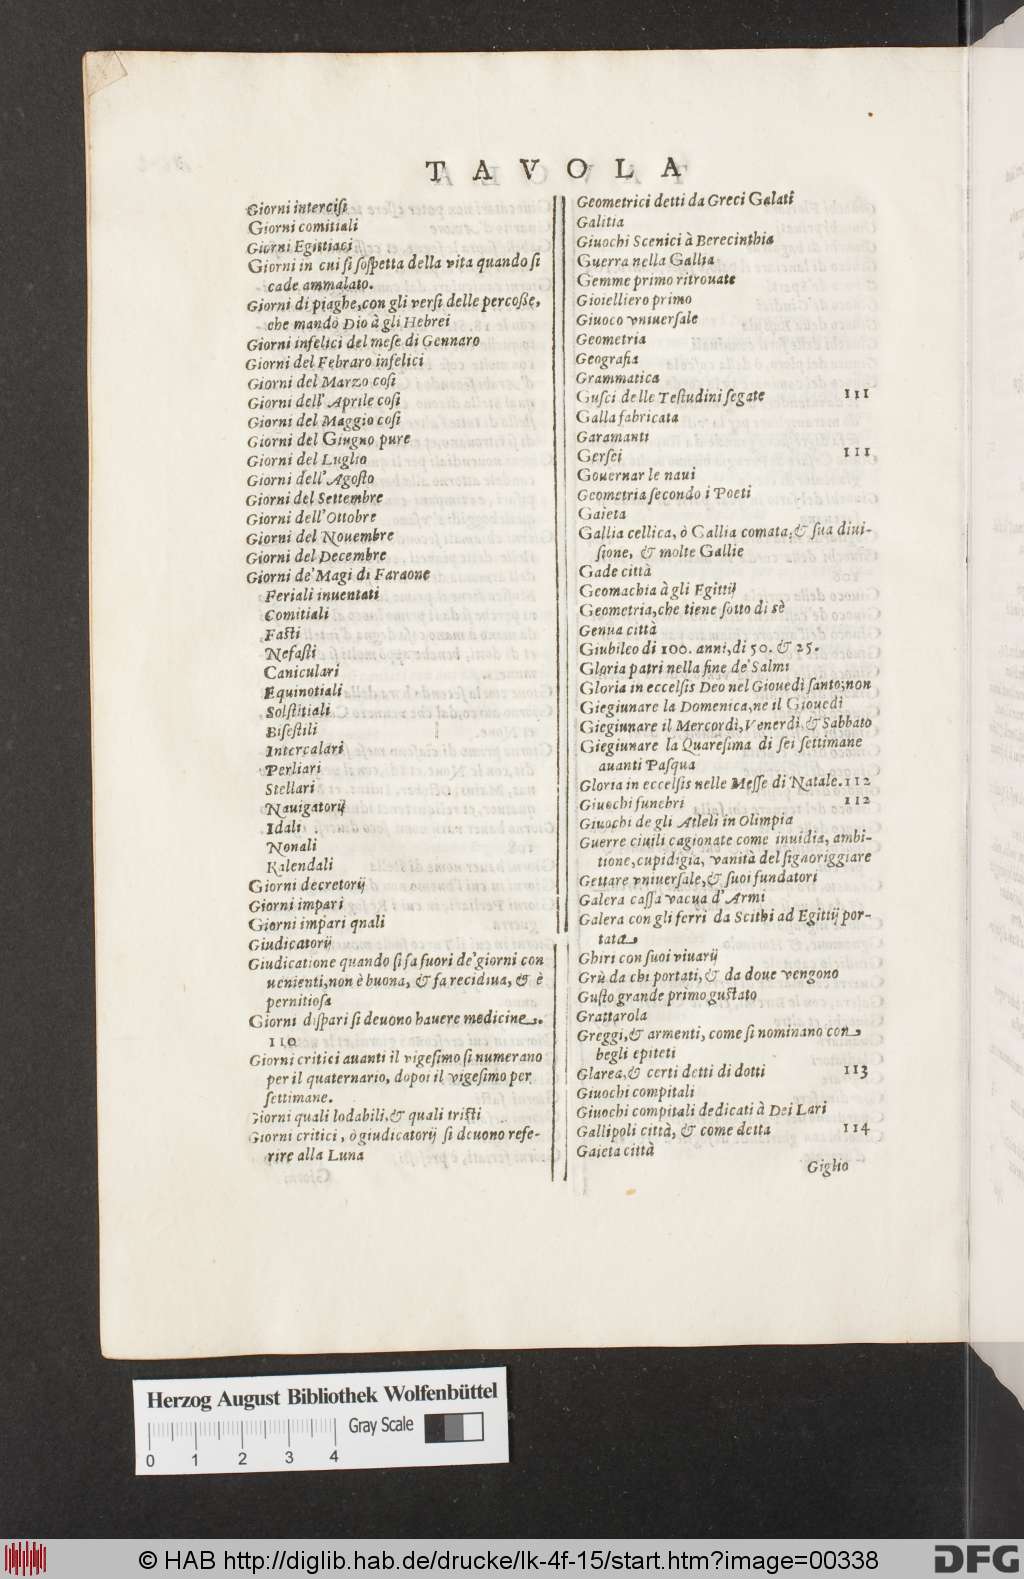 TAVOLA
Giorni intercisi
Giorni comitiali
Giorni Egittiaci
Giorni in cui si sospetta della vita quando si
cade ammalato.
Giorni di piaghe, con gli versi delle percosse,
che mandò Dio à gli Hebrei
Giorni infelici del mese di Gennaro
Giorni del Febraro infelici
Giorni del Marzo cosi
Giorni dell' Aprile cosi
Giorni del Maggio cosi
Giorni del Giugno pure
Giorni del Luglio
Giorni dell' Agosto
Giorni del Settembre
Giorni dell' Ottobre
Giorni del Nouembre
Giorni del Decembre
Giorni de' Magi di Faraone
Feriali inuentati
Comitiali
Fasti
Nefasti
Caniculari
Equinotiali
Solstitiali
Bisestili
Intercalari
Perliari
Stellari
Nauigatorij
Idali
Nonali
Kalendali
Giorni decretorij
Giorni impari
Giorni impari qnali
Giudicatorij
Giudicatione quando si fa fuori de' giorni con
uenienti, non è buona, & fa recidiua, & è
pernitiosa
Giorni dispari si deuono hauere medicine.
110
Giorni critici auanti il vigesimo si numerano
per il quaternario, dopoi il vigesimo per
settimane.
Giorni quali lodabili, & quali tristi
Giorni critici, ò giudicatorij si deuono refe-
rire alla Luna
Geometrici detti da Greci Galati
Galitia
Giuochi Scenici à Berecinthia
Guerra nella Gallia
Gemme primo ritrouate
Gioielliero primo
Giuoco vniuersale
Geometria
Geografia
Grammatica
Gusci delle Testudini segate 111
Galla fabricata
Garamanti
Gersei 111
Gouernar le naui
Geometria secondo i Poeti
Gaieta
Gallia cellica, ò Gallia comata, & sua diui-
sione, & molte Gallie
Gade città
Geomachia à gli Egittij
Geometria, che tiene sotto di sè
Genua città
Giubileo di 100. anni, di 50. & 25.
Gloria patri nella fine de' Salmi
Gloria in eccelsis Deo nel Giouedì santo; non
Giegiunare la Domenica, ne il Giouedì
Giegiunare il Mercordì, Venerdì, & Sabbato
Giegiunare la Quaresima di sei settimane
auanti Pasqua
Gloria in eccelsis nelle Messe di Natale. 112
Giuochi funebri 112
Giuochi de gli Atleli in Olimpia
Guerre ciuili cagionate come inuidia, ambi-
tione, cupidigia, vanità del signoriggiare
Gettare vniuersale, & suoi fundatori
Galera cassa vacua d' Armi
Galera con gli ferri da Scithi ad Egittij por-
tata.
Ghiri con suoi viuarij
Grù da chi portati, & da doue vengono
Gusto grande primo gustato
Grattarola
Greggi, & armenti, come si nominano con
begli epiteti
Glarea, & certi detti di dotti 113
Giuochi compitali
Giuochi compitali dedicati à Dei Lari
Gallipoli città, & come detta 114
Gaieta città
Giglio
Herzog August Bibliothek Wolfenbüttel
Gray Scale
0 1 2 3 4
© HAB http://diglib.hab.de/drucke/lk-4f-15/start.htm?image=00338
DFG